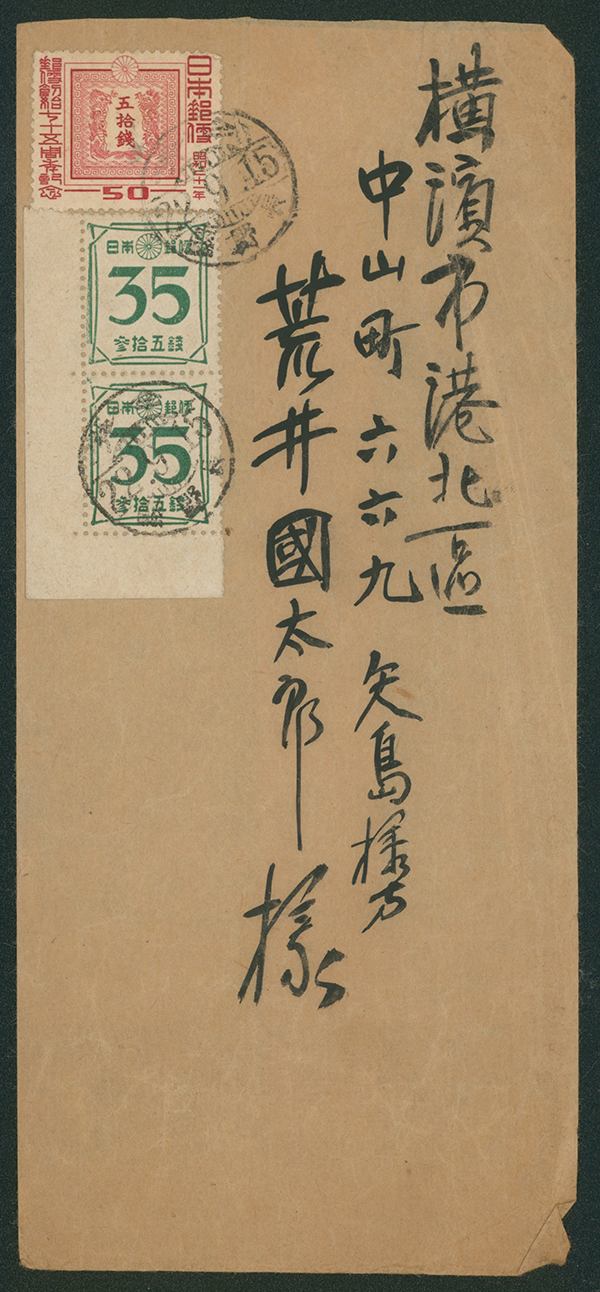 横濱市港北區
中山町 六六九 矢島様方
荒井國太郎 様
日本郵便
昭和二十一年
五拾錢
50
郵便創始七十五周年記念
日本 郵便
35
參拾五錢
日本 郵便
35
參拾五錢